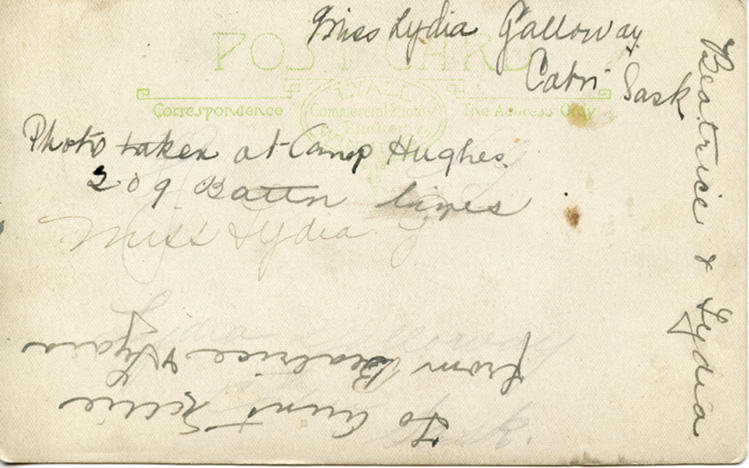 Miss Lydia Galloway
Cabri Sask
POST CARD
Correspondence
The Address Only
Commercial Photo
Photo taken at Camp Hughes.
209 Battn lines
Miss Lydia G
Beatrice & Lydia
To Aunt Nellie
from Beatrice & Lydia